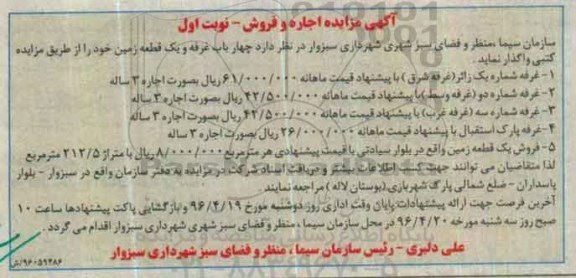 آگهی مزایده اجاره و فروش - نوبت اول
سازمان سیما ،منظر و فضای سبز شهری شهرداری سبزوار در نظر دارد چهار باب غرفه و یک قطعه زمین خود را از طریق مزایده
کتبی واگذار نماید .
۱- غرفه شماره یک زائر(غرفه شرق ) با پیشنهاد قیمت ماهانه ۶۱/۰۰۰/۰۰۰ ریال بصورت اجاره ۳ ساله
۲- غرفه شماره دو (غرفه وسط )با پیشنهاد قیمت ماهانه ۴۲/۵۰۰/۰۰۰ ریال بصورت اجاره ۳ ساله
۳- غرفه شماره سه (غرفه غرب) با پیشنهاد قیمت ماهانه ۴۲/۵۰۰/۰۰۰ ریال بصورت اجاره ۳ ساله
۴-غرفه پارک استقبال با پیشنهاد قیمت ماهانه ۲۶/۰۰۰/۰۰۰ ریال بصورت اجاره ۳ ساله
۵- فروش یک قطعه زمین واقع در بلوار سیادتی با قیمت پیشنهادی هر مترمربع ۸/۰۰۰/۰۰۰ ریال با متراژ ۲۱۲/۵ مترمربع
لذا متقاضیان می توانند جهت کسب اطلاعات بیشتر و دریافت اسناد شرکت در مزایده به دفتر سازمان واقع در سبزوار - بلوار
پاسداران - ضلع شمالی پارک شهربازی(بوستان لاله ) مراجعه نمایند .
آخرین فرصت جهت ارائه پیشنهادات پایان وقت اداری روز دوشنبه مورخ ۹۶/۴/۱۹ و بازگشایی پاکت پیشنهادها ساعت ۱۰
صبح روز سه شنبه مورخه ۹۶/۴/۲۰ در محل سازمان سیما ، منظر و فضای سبز شهری شهرداری سبزوار اقدام می گردد .
علی دلبری - رئیس سازمان سیما ، منظر و فضای سبز شهرداری سبزوار
۹۶۰۵۹۴۸۶/ش